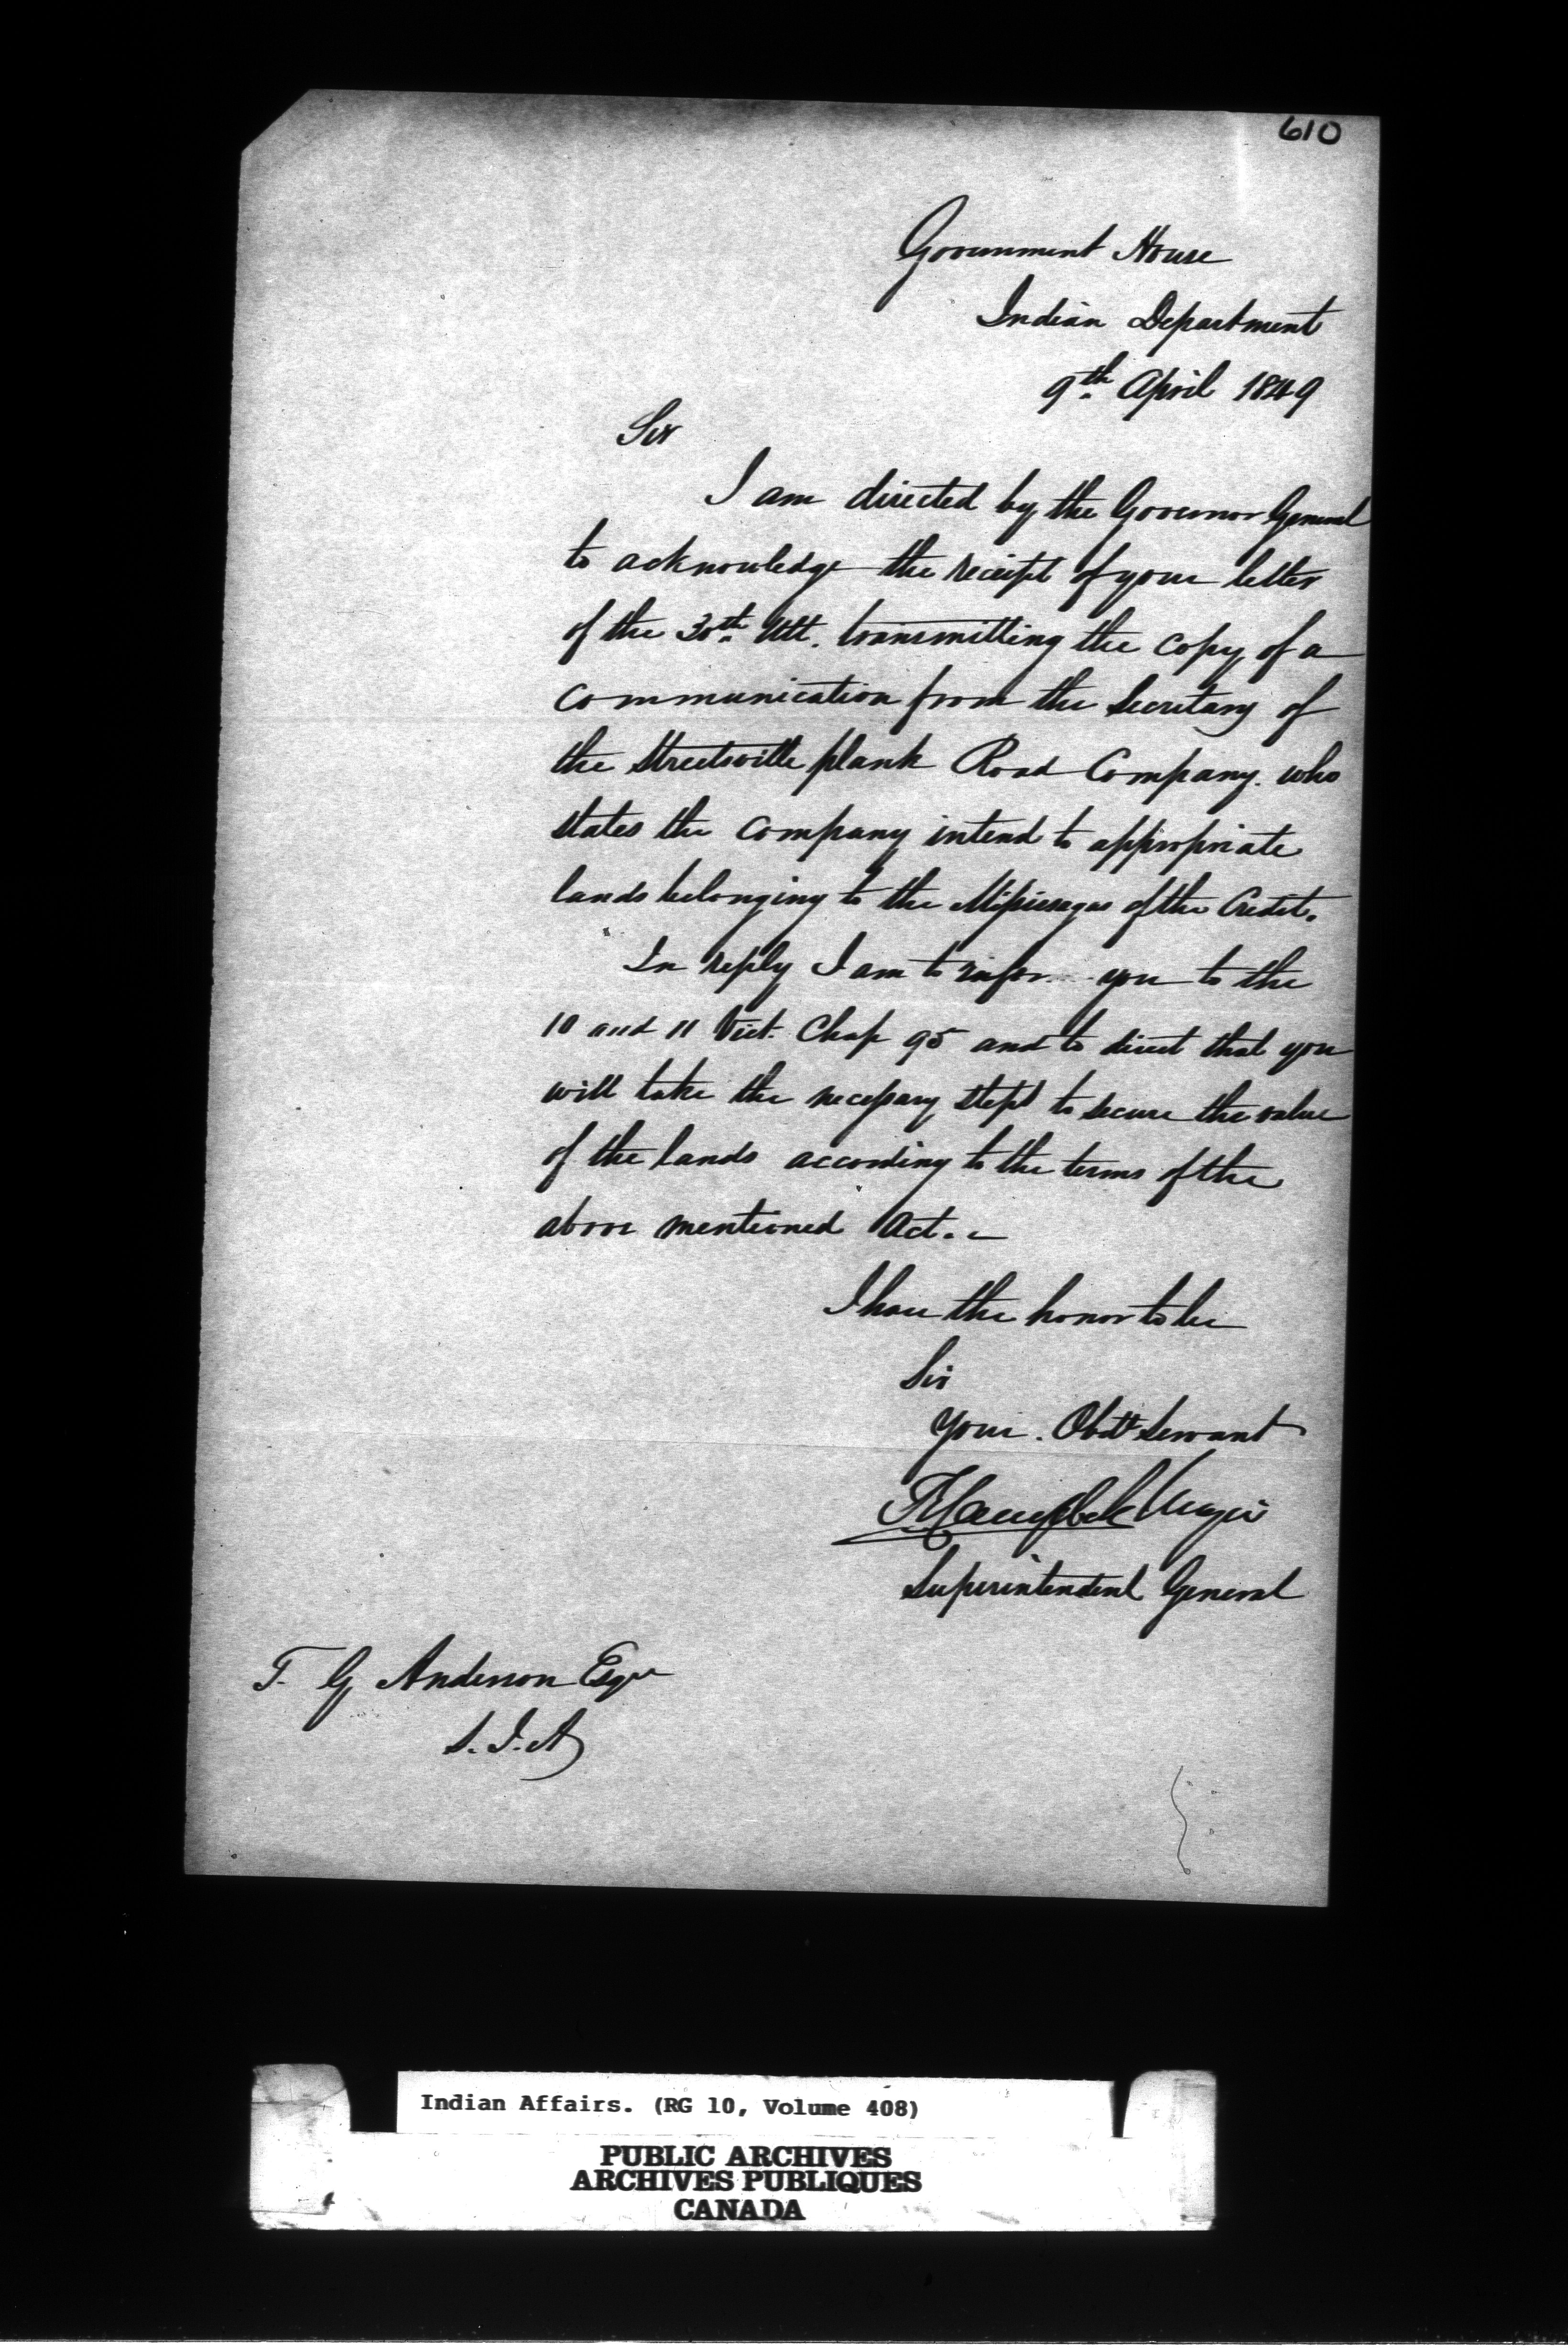 610
Government House
Indian Department
9th April 1849
Sir
I am directed by the Governor General
to acknowledge the receipt of your letter
of the 30th Ult. transmitting the copy of a
communication from the Secretary of
the Streetsville plank Road Company. who
states the Company intend to appropriate
lands belonging to the Missisegas of the Credit.
In reply I am to you to the
10 and 11 Vict. Chap 95 and to direct that you
will take the necessary steps to secure the value
of the lands according to the terms of the
above mentioned Act.
I have the honor to be
Sir
Your. Obdt Servant
T Campbell Major
Superintendent General
T. G Anderson Esqr
S. I. A
Indian Affairs. (RG 10, Volume 408)
PUBLIC ARCHIVES
ARCHIVES PUBLIQUES
CANADA